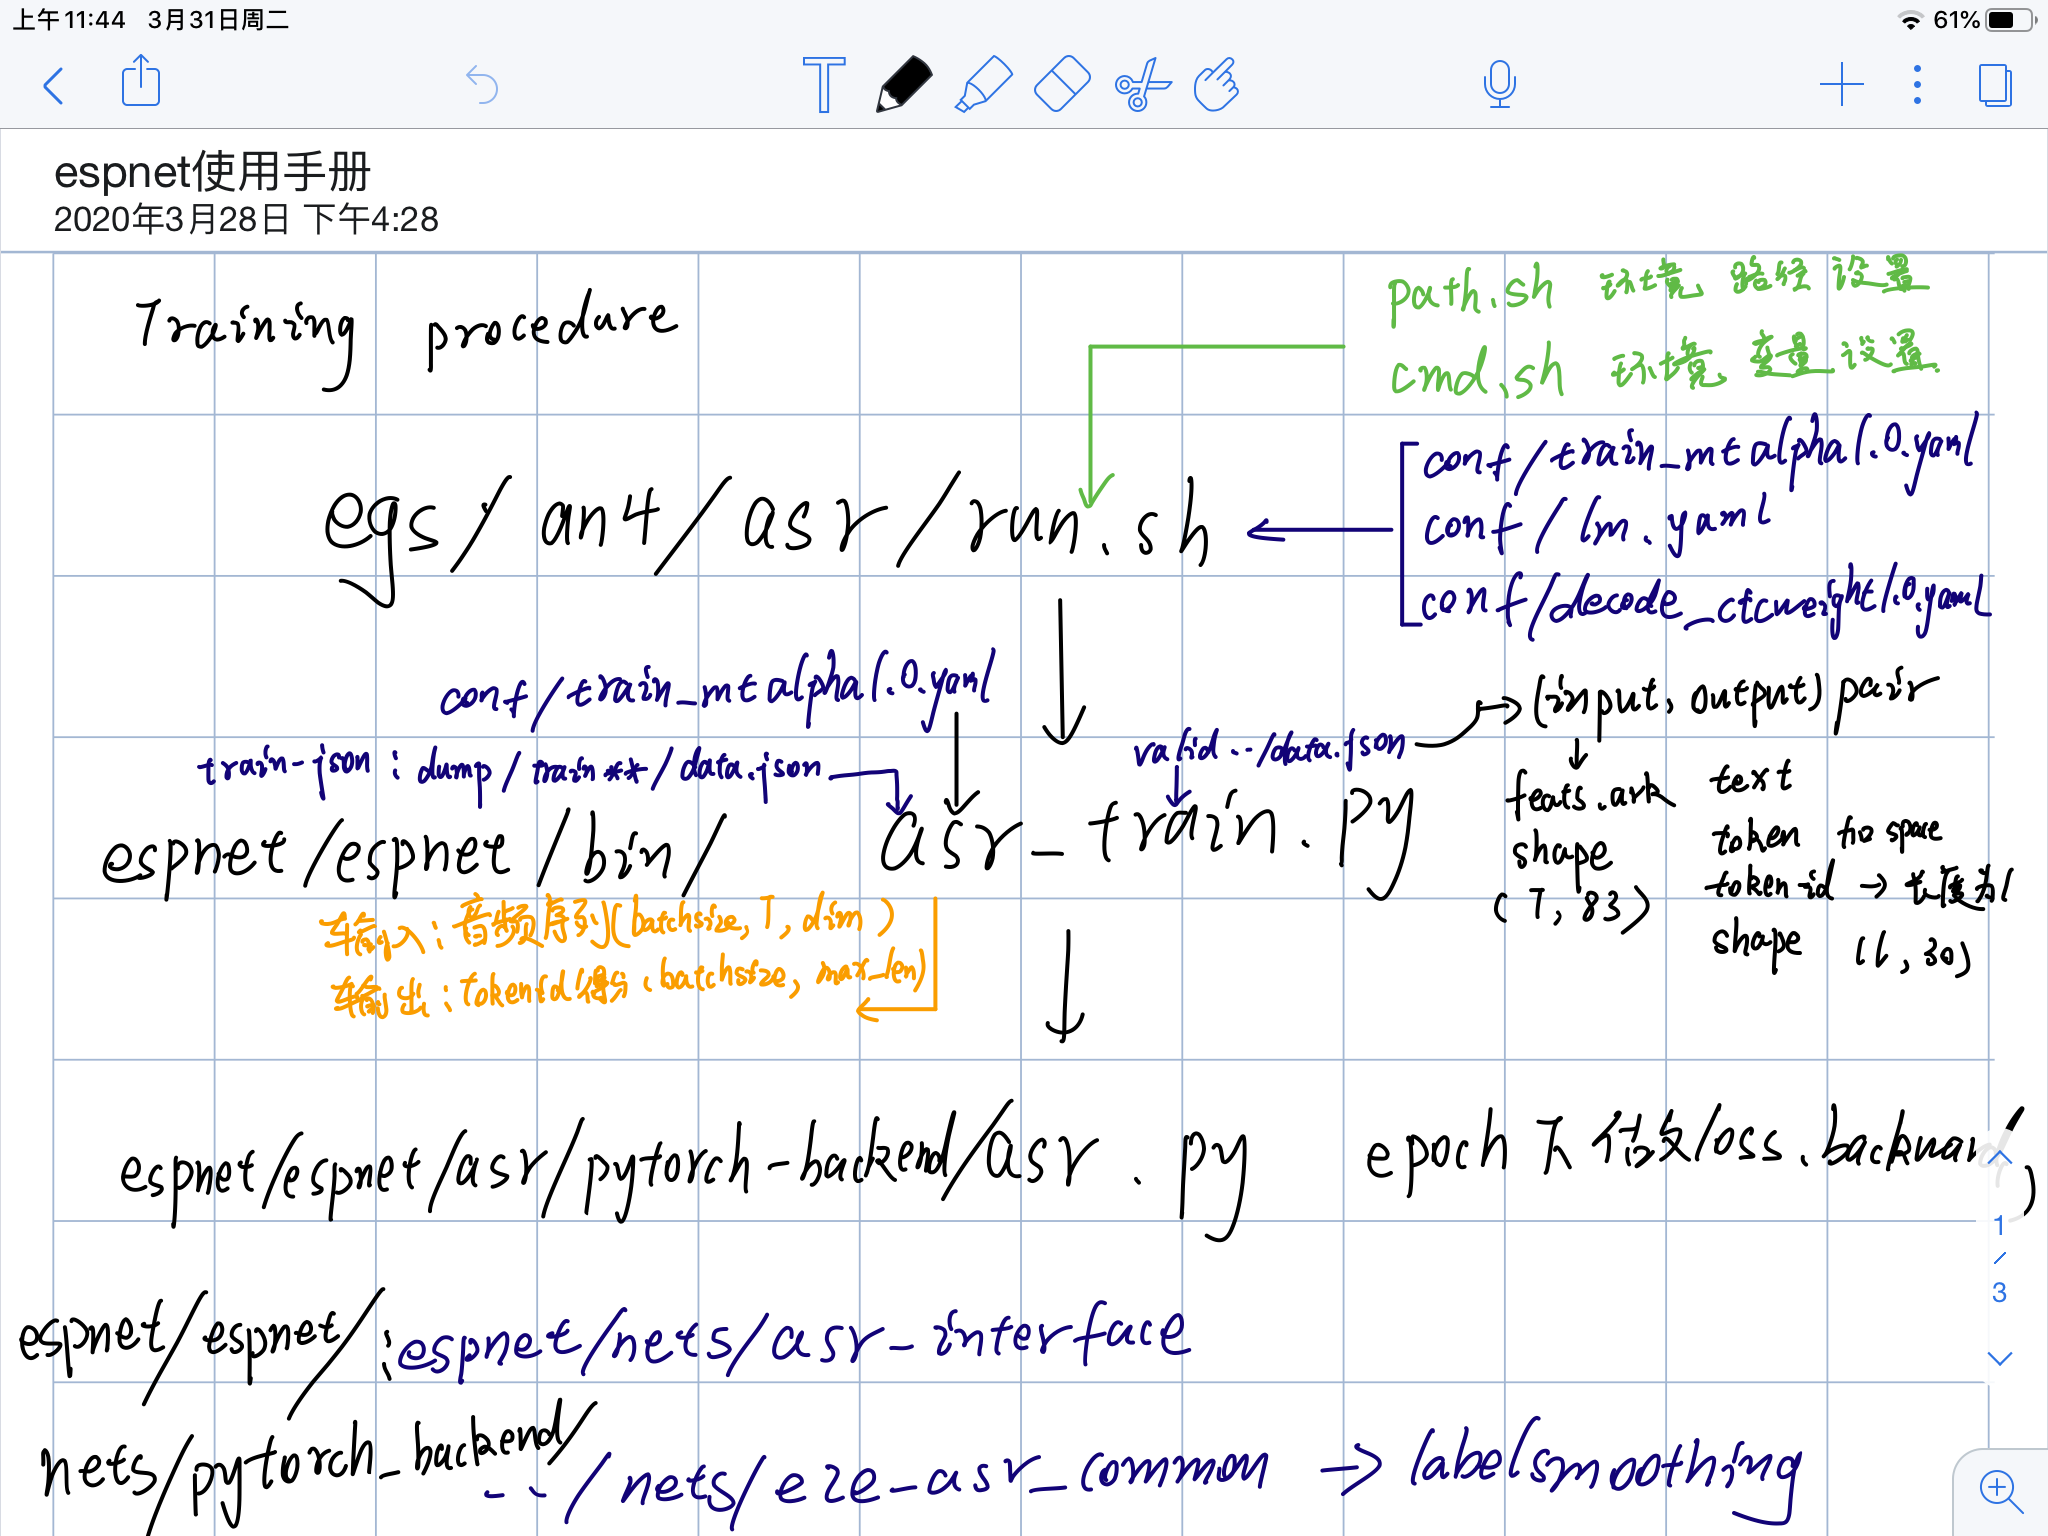 上午11:44 3月31日周二 61%
espnet使用手册
2020年3月28日 下午4:28
Training procedure
path.sh 环境 路径 设置
cmd.sh 环境 变量 设置
egs/an4/asr/run.sh
conf/train_mtalpha1.0.yaml
conf/lm.yaml
conf/decode_ctcweight1.0.yaml
conf/train_mtalpha1.0.yaml
train-json: dump/train**/data.json
valid ../data.json
(input, output) pair
feats.ark
shape
(T, 83)
text
token no space
tokenid → 长度为1
shape (1, 30)
espnet/espnet/bin/ asr_train.py
输入: 音频序列(batchsize, T, dim)
输出: tokenid得分(batchsize, max_len)
espnet/espnet/asr/pytorch-backend/asr.py
epoch 下 loss.backward()
espnet/espnet/: espnet/nets/asr-interface
nets/pytorch_backend/
../nets/e2e-asr_common → labelsmoothing
1/3